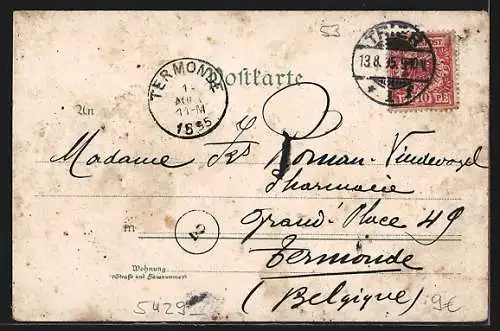 53
TRIER
13.8.95
1
10 PF
TERMONDE
AOUT
11-M
1895
Postkarte
An
Madame
Roman-Vindevogel
Pharmacie
Grand' Place 49
in
Termonde
Wohnung
(Straße und Hausnummer)
(Belgique)
5429
9€